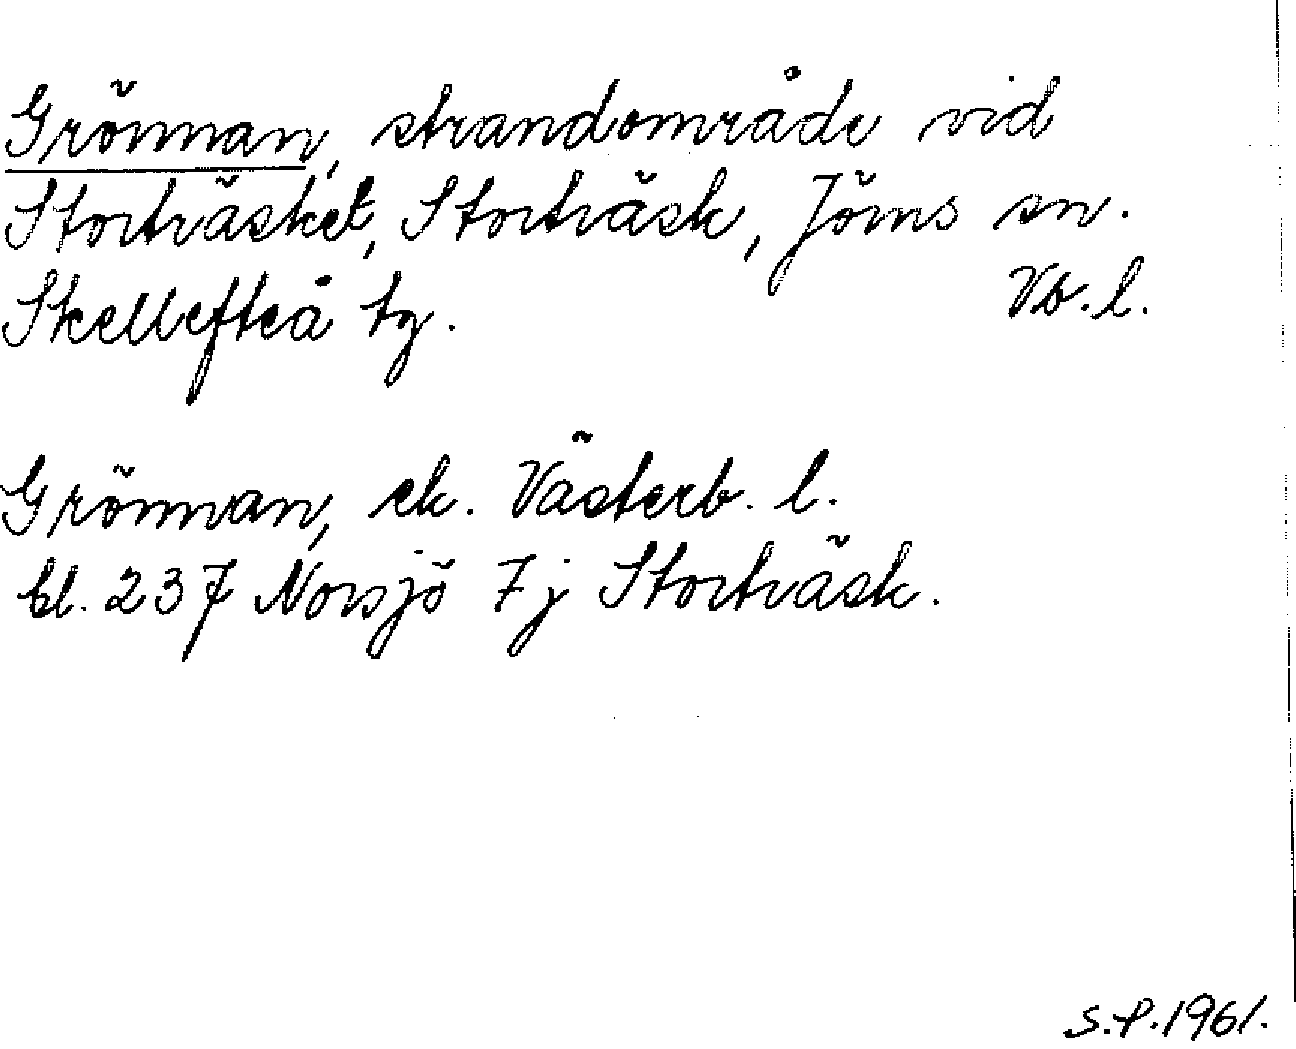 Grönnan, strandområde vid
Storträsket, Storträsk, Jörns sn.
Skellefteå tg. Vb. l.
Grönnan, ek. Västerb. l.
bl. 237 Norsjö 7j Storträsk.
S.P. 1961.